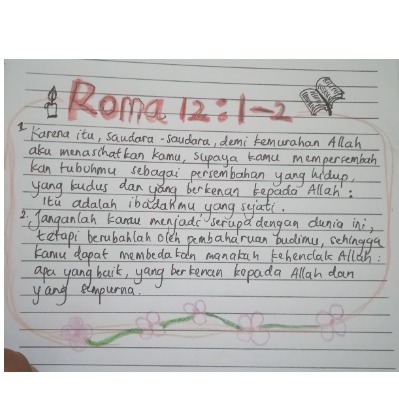 Roma 12:1-2
1. Karena itu, saudara-saudara, demi kemurahan Allah
aku menasihatkan kamu, supaya kamu mempersembah
kan tubuhmu sebagai persembahan yang hidup,
yang kudus dan yang berkenan kepada Allah:
itu adalah ibadahmu yang sejati.
2. Janganlah kamu menjadi serupa dengan dunia ini,
tetapi berubahlah oleh pembaharuan budimu, sehingga
kamu dapat membedakan manakah kehendak Allah:
apa yang baik, yang berkenan kepada Allah dan
yang sempurna.